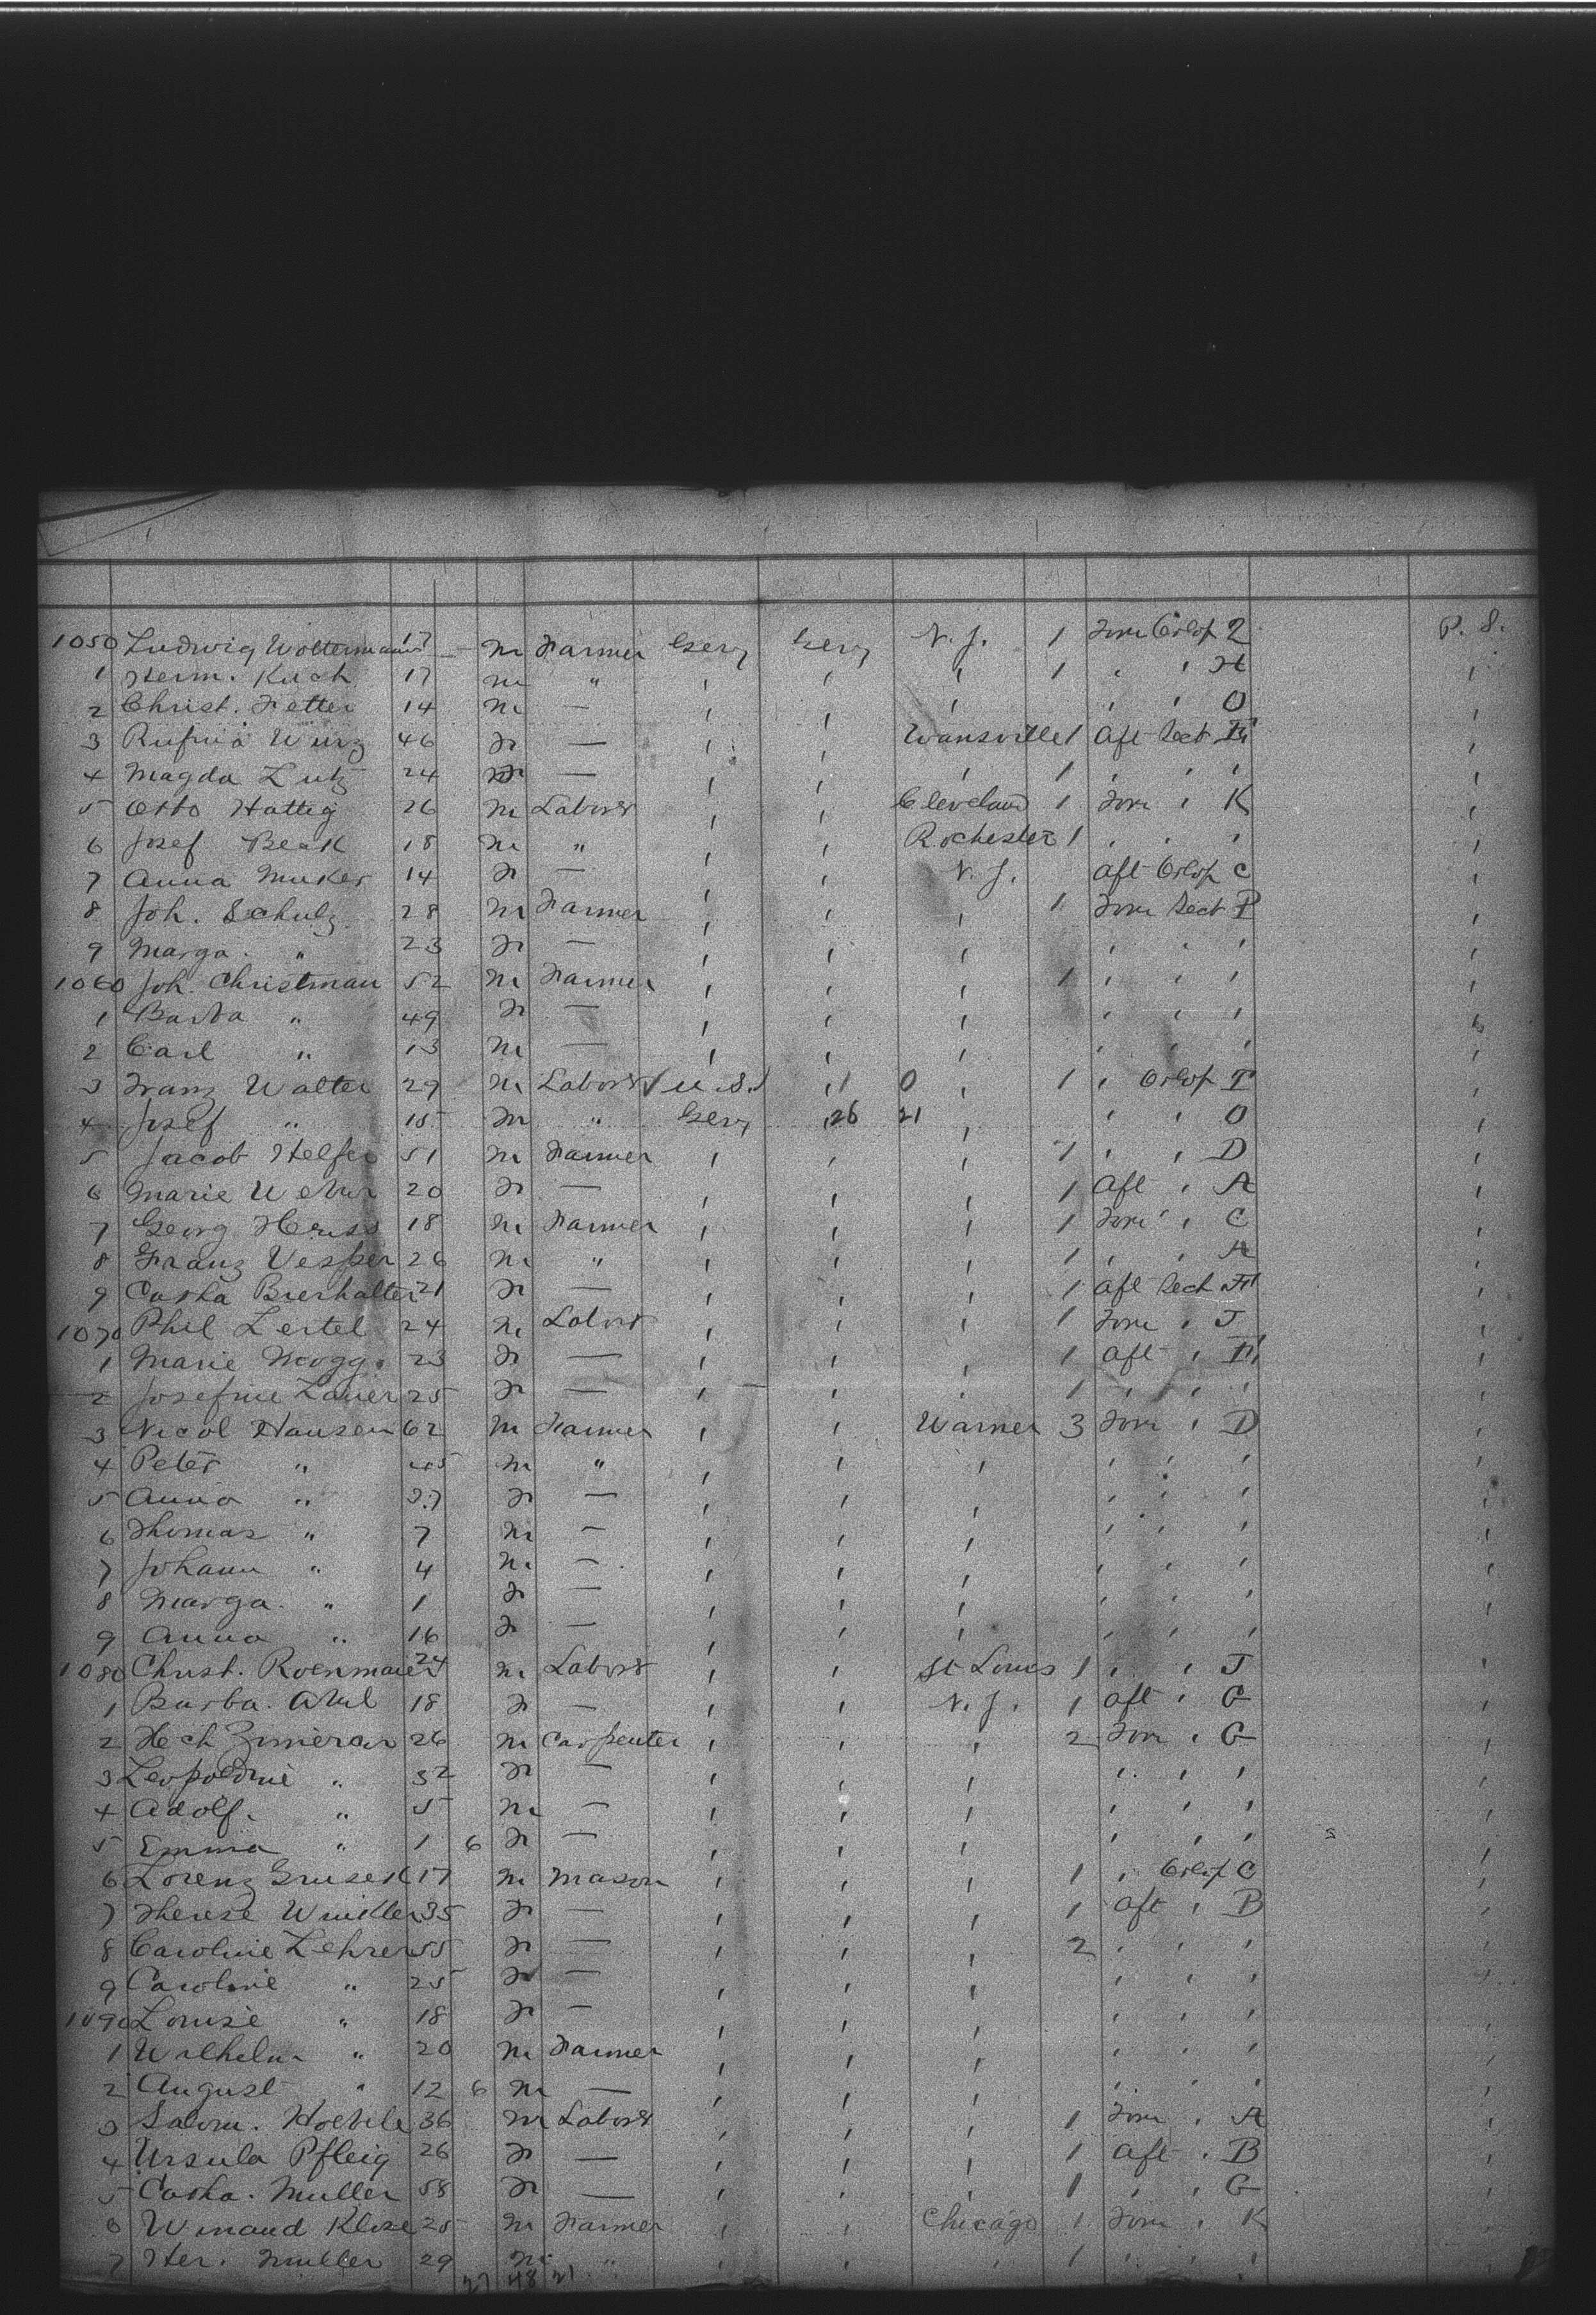 1050 Ludwig Woltermann 17 — m Farmer Gery Gery N. J. 1 Forw Orlop 2 P. S.
1 Herm. Kuch 17 m " ' ' ' 1 ' ' H '
2 Christ. Fetter 14 m — ' ' ' ' ' O '
3 Rufina Wurz 46 F — ' ' Wansville 1 Aft Sect '
4 Magda Lutz 24 F — ' ' ' 1 ' ' ' '
5 Otto Hattig 26 m Labor ' ' Cleveland 1 Forw ' K '
6 Josef Beck 18 m " ' ' Rochester 1 ' ' ' '
7 Anna Mukes 14 F — ' ' N. J. Aft Orlop C '
8 Joh. Schulz 28 m Farmer ' ' ' 1 Forw Sect P '
9 Marga. " 23 F — ' ' ' ' ' ' '
1060 Joh. Christman 52 m Farmer ' ' ' 1 ' ' ' '
1 Barba " 49 F — ' ' ' ' ' ' '
2 Carl " 13 m — ' ' ' ' ' ' '
3 Franz Walter 29 m Labor 1 U.S. 1 ' 1 0 ' 1 ' Orlop P '
4 Josef " 15 m " Gery 26 21 ' ' ' O '
5 Jacob Helfer 51 m Farmer ' ' ' 1 ' ' D '
6 Marie Weber 20 F — ' ' ' 1 Aft ' A '
7 Georg Heuss 18 m Farmer ' ' ' 1 Forw ' C '
8 Franz Vesper 26 m " ' ' ' 1 ' ' A '
9 Catha Bierhalter 21 F — ' ' ' 1 Aft Sect '
1070 Phil Lertel 24 m Labor ' ' ' 1 Forw ' J '
1 Marie Mogg. 23 F — ' ' ' 1 Aft ' '
2 Josefine Lauer 25 F — ' ' ' 1 ' ' ' '
3 Nicol Hansen 62 m Farmer ' ' Warner 3 Forw ' D '
4 Peter " m " ' ' ' ' ' ' '
5 Anna " 37 F — ' ' ' ' ' ' '
6 Thomas " 7 m — ' ' ' ' ' ' '
7 Johann " 4 m — ' ' ' ' ' ' '
8 Marga. " 1 F — ' ' ' ' ' ' '
9 Anna " 16 F — ' ' ' ' ' ' '
1080 Christ. Roenmaier 24 m Labor ' ' St Louis 1 ' ' J '
1 Barba. Abel 18 F — ' ' N. J. 1 Aft ' G '
2 Hch Zimerar 26 m Carpenter ' ' ' 2 Forw ' G '
3 Leopoldine " 32 F — ' ' ' ' ' ' '
4 Adolf. " 5 m — ' ' ' ' ' ' '
5 Emma " 1 6 F — ' ' ' ' ' ' '
6 Lorenz Gruseck 17 m Mason ' ' ' 1 ' Orlop C '
7 Therese Winkler 35 F — ' ' ' 1 Aft ' B '
8 Caroline Lehrer 55 F — ' ' ' 2 ' ' ' '
9 Caroline " 25 F — ' ' ' ' ' ' '
1090 Louise " 18 F — ' ' ' ' ' ' '
1 Wilhelm " 20 m Farmer ' ' ' ' ' ' '
2 August " 12 6 m — ' ' ' ' ' ' '
3 Salom. Hoebele 36 m Labor ' ' ' 1 Forw ' A '
4 Ursula Pfleig 26 F — ' ' ' 1 Aft ' B '
5 Catha. Muller 58 F — ' ' ' 1 ' ' G '
6 Winand Klose 25 m Farmer ' ' Chicago 1 Forw ' K '
7 Her. Muller 29 m " ' ' ' 1 ' ' ' '
27 48 21